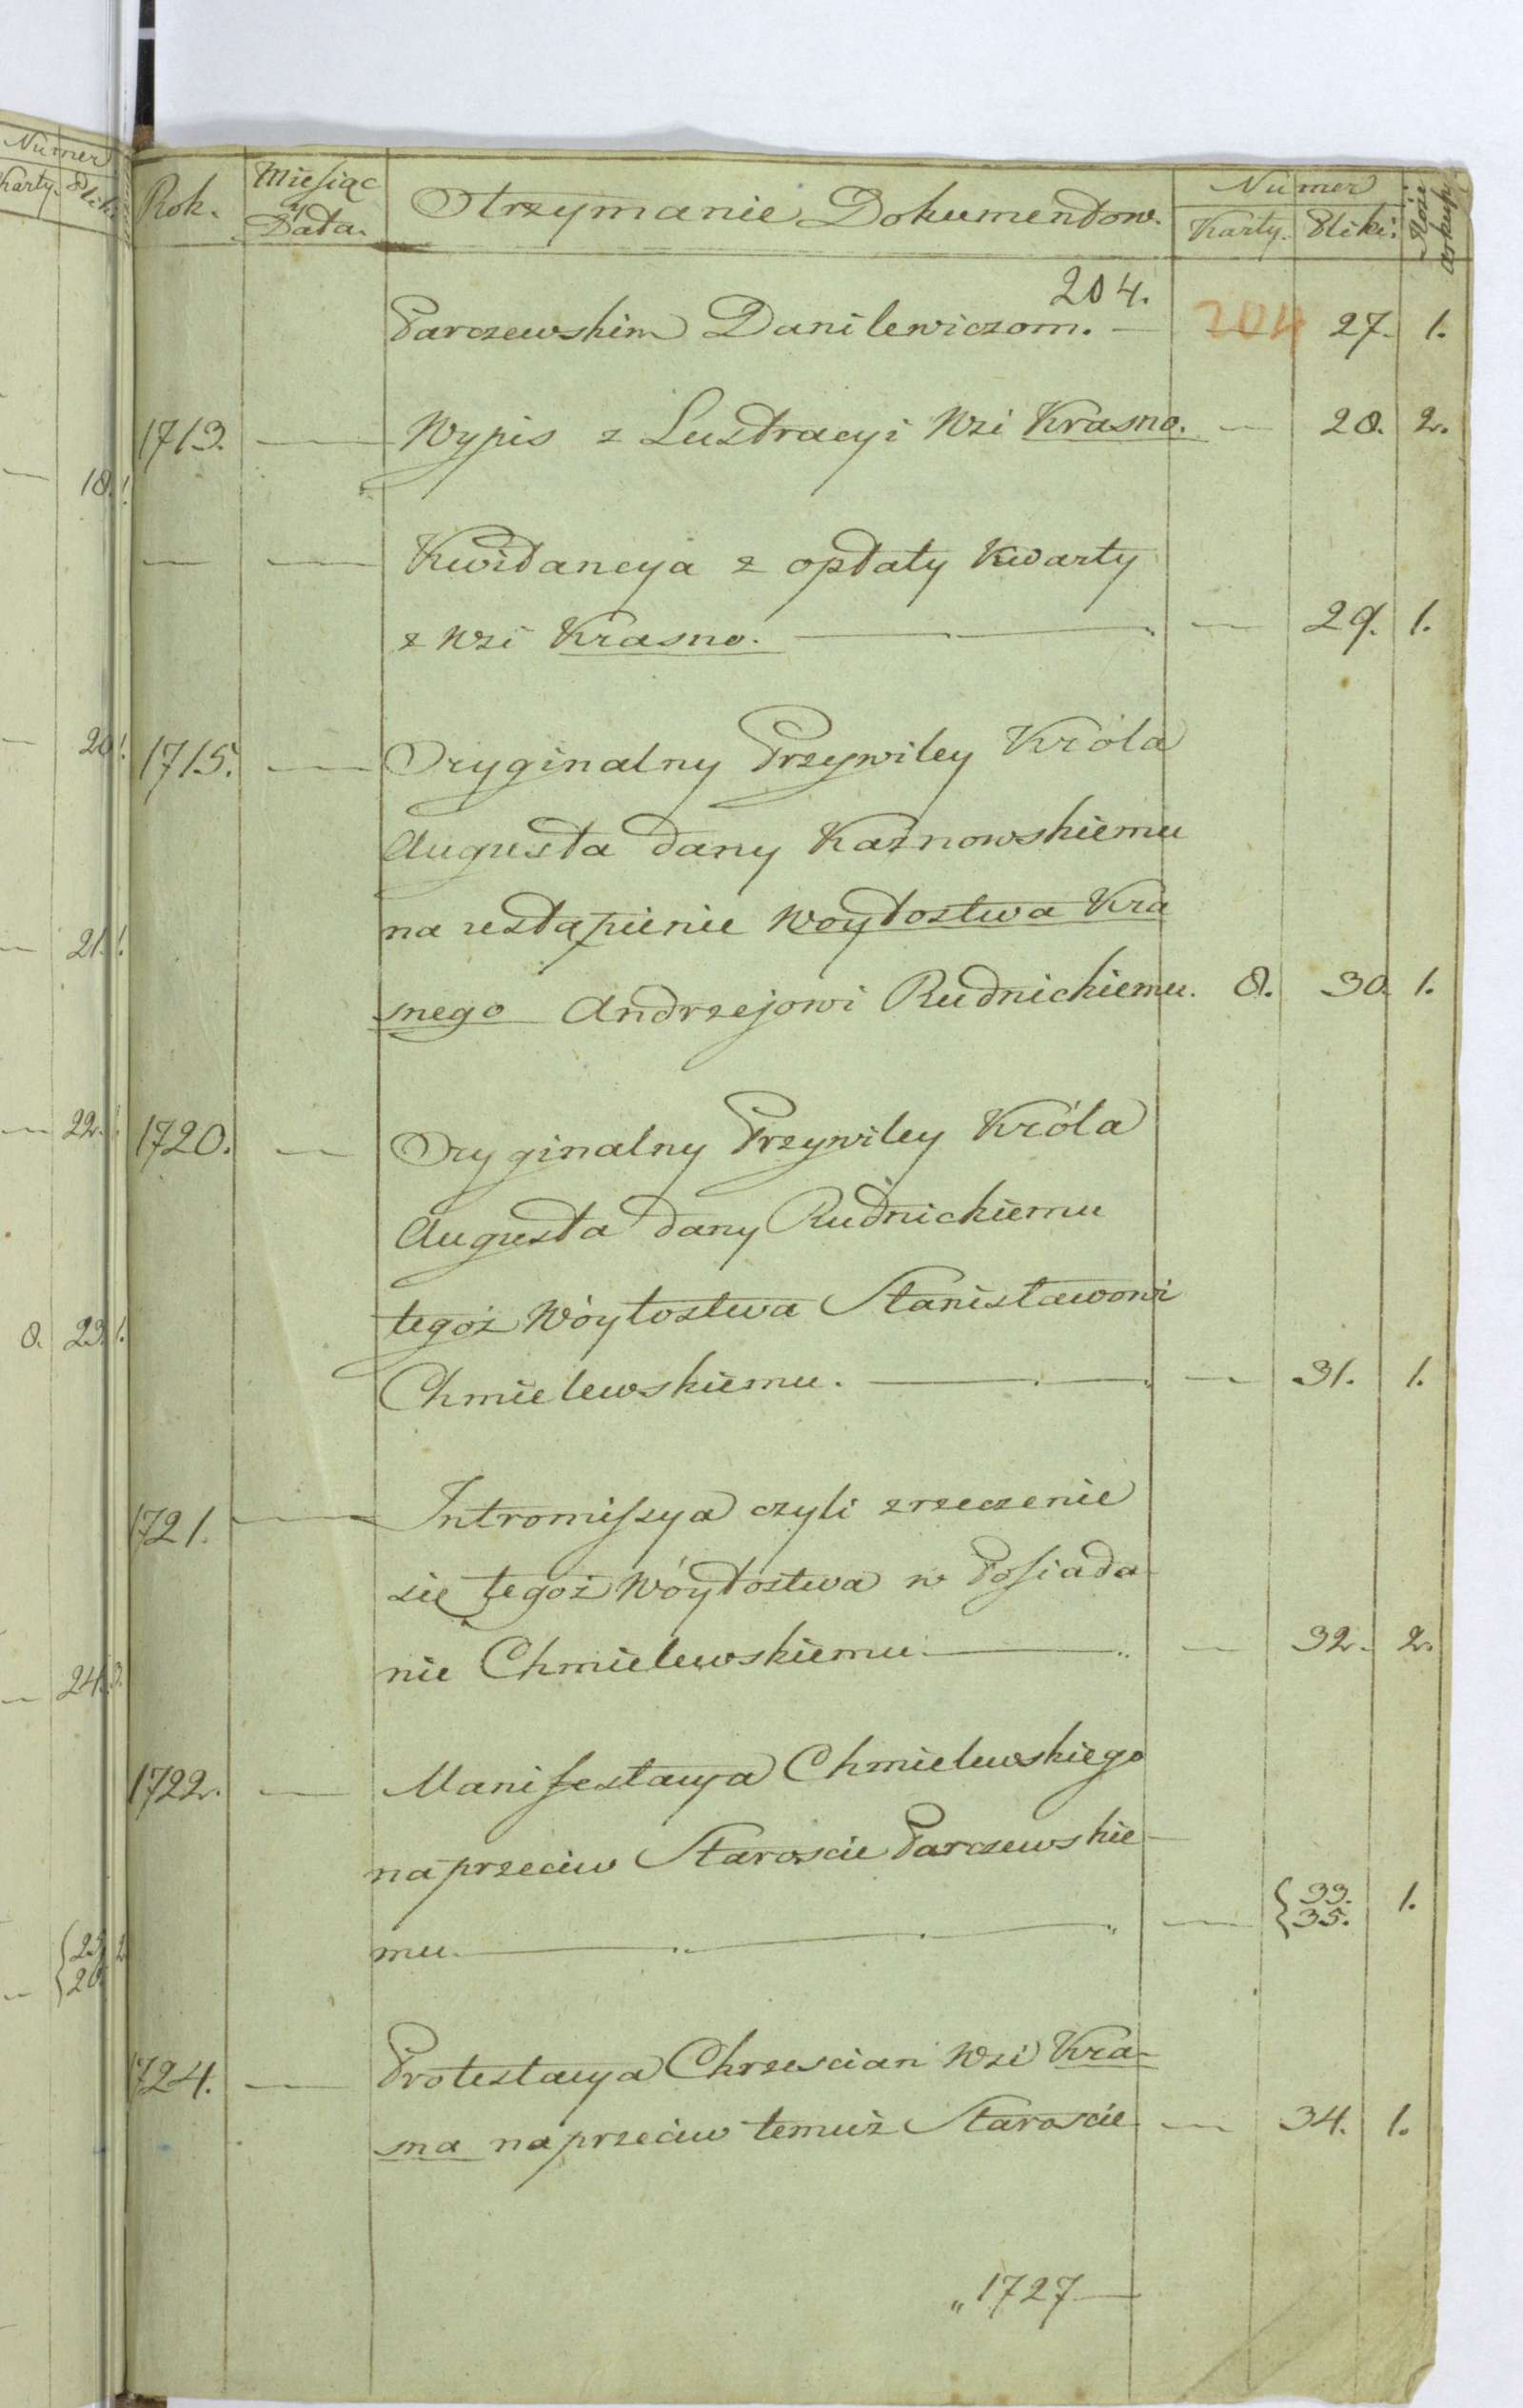 Numer
Karty. Pliki.
18. 1.
20. 1.
21. 1.
22. 1.
8. 23. 1.
24.
25. 2
26.
Rok. Miesiąc y Data. Otrzymanie Dokumentow. Numer Karty. Pliki. Ilość arkuszy
204.
Parczewskim Danilewiczom. — 204 27. 1.
1713. — Wypis z Lustracyi Wsi Krasno. — 28. 2.
— — Kwitancya z opłaty Kwarty
z Wsi Krasno. — — 29. 1.
1715. — Oryginalny Przywiley Króla
Augusta dany Karnowskiemu
na ustąpienie Woytostwa Kra
snego Andrzejowi Rudnickiemu. 8. 30. 1.
1720. — Oryginalny Przywiley Króla
Augusta dany Rudnickiemu
tegoż Wóytostwa Stanisławowi
Chmielewskiemu. — — 31. 1.
1721. — Intromissya czyli zrzeczenie
sie tegoż Wóytostwa w Posiada
nie Chmielewskiemu. — — 32. 2.
1722. — Manifestacya Chmielewskiego
naprzeciw Staroscie Parczewskie-
mu. — — {33. 35. 1.
1724. — Protestacya Chrzescian Wsi Kra-
sna naprzeciw temuż Staroscie — 34. 1.
„1727—